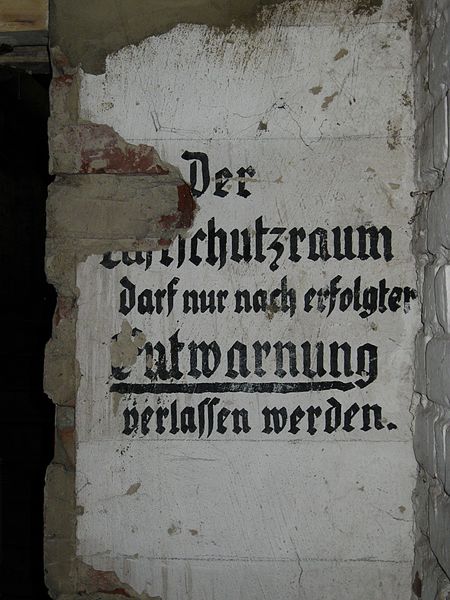 Der
Luftschutzraum
darf nur nach erfolgter
Entwarnung
verlassen werden.